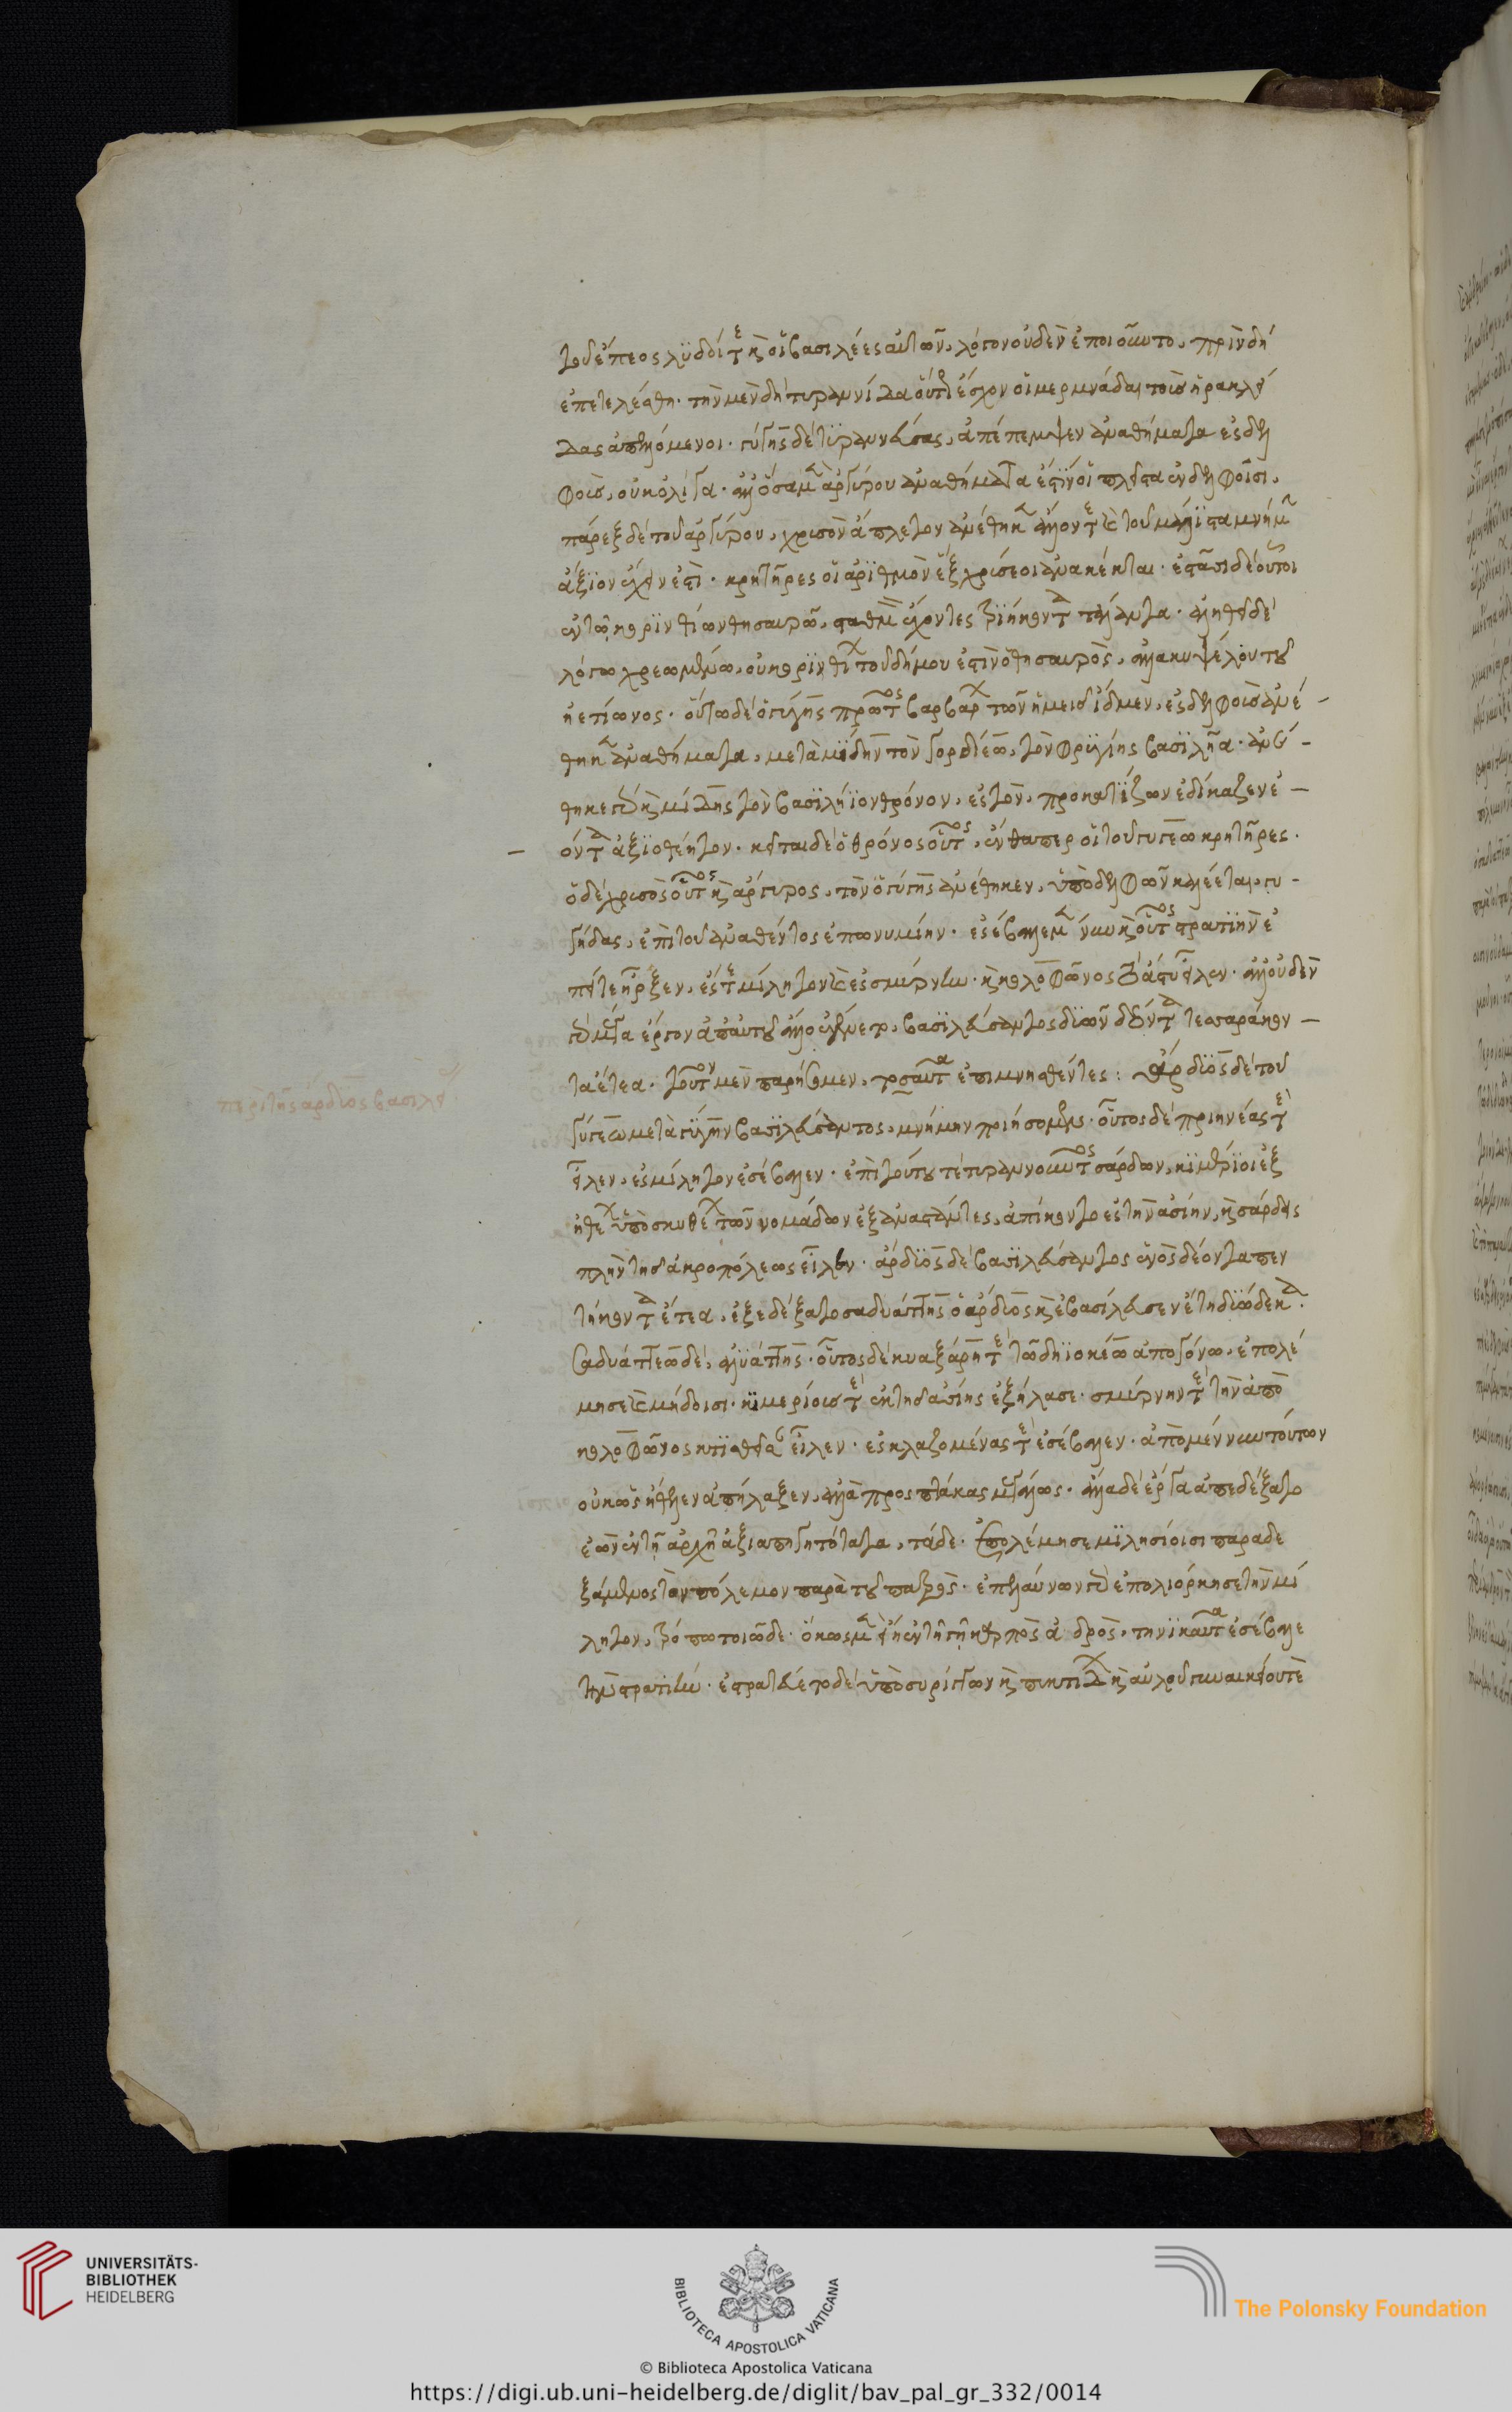 τοῦ ἔπεος λυδοί τε καὶ οἱ βασιλέες αὐτῶν, λόγον οὐδὲν ἐποιοῦντο, πρὶν δὴ
ἐπετελέσθη· τὴν μὲν δὴ τυραννίδα οὕτω ἔσχον οἱ μερμνάδαι τοὺς ἡρακλεί
δας ἀπελόμενοι· γύγης δὲ τυραννεύσας, ἀπέπεμψεν ἀναθήματα ἐς δελ
φοὺς, οὐκ ὀλίγα· ἀλλ' ὅσα μὲν ἀργύρου ἀναθήματα ἔστιν οἱ πλεῖστα ἐν δελφοῖσι,
πάρεξ δὲ τοῦ ἀργύρου, χρυσὸν ἄπλετον ἀνέθηκεν ἄλλον τε καὶ τοῦ μάλιστα μνήμην
ἄξιον ἔχειν ἐστὶ· κρητῆρες οἱ ἀριθμὸν ἓξ χρύσεοι ἀνακέινται· ἑστᾶσι δὲ οὗτοι
ἐν τῷ κορινθίων θησαυρῷ, σταθμὸν ἔχοντες τριήκοντα τάλαντα· ἀληθεῖ δὲ
λόγω χρεωμένω, οὐ κορινθίων τοῦ δήμου ἐστὶν ὁ θησαυρὸς, ἀλλὰ κυψέλου τοῦ
ἠετίωνος· οὗτω δὲ ὁ γύγης πρῶτος βαρβάρων τῶν ἡμεῖς ἴδμεν, ἐς δελφοὺς ἀνέ -
θηκεν ἀναθήματα, μετὰ μίδην τὸν γορδίεω, τὸν φρυγίης βασιλῆα· ἀνέ -
θηκε γὰρ καὶ μίδης τὸν βασιλήϊον θρόνον, ἐς τὸν, προκατίζων ἐδίκαζεν ἐ -
όντα ἀξιοθέητον· κεῖται δὲ ὁ θρόνος οὗτος, ἔνθαπερ οἱ τοῦ γύγεω κρητῆρες·
ὁ δὲ χρυσὸς οὗτος καὶ ἄργυρος, τὸν ὁ γύγης ἀνέθηκεν, ὑπὸ δελφῶν καλέεται, γυ -
γάδας, ἐπὶ τοῦ ἀναθέντος ἐπωνυμίην· ἐσέβαλε μέν νυν καὶ οὗτος στρατιὴν ἐ
πείτε ἦρξεν, ἔς τε μίλητον καὶ ἐς σμύρνην· καὶ κολοφῶνος τὸ ἄστυ εἷλεν· ἀλλ' οὐδὲν
γὰρ μέγα ἔργον ἀπ' αὐτοῦ ἄλλο ἐγένετο, βασιλεύσαντος δυῶν δέοντα τεσσαράκον -
τα ἔτεα· τοῦτον μὲν παρήσομεν, τοσαῦτα ἐπιμνησθέντες: ἄρδϊος δὲ τοῦ
περὶ τῆς ἄρδιος βασιλεί
γύγεω μετὰ γύγην βασιλεύσαντος, μνήμην ποιήσομαι· οὗτος δὲ πριηνέας τε
εἷλεν, ἐς μίλητον ἐσέβαλεν· ἐπὶ τούτου τε τυραννοῦντος σάρδων, κιμμέριοι ἐξ
ἠθέων ὑπὸ σκυθέων τῶν νομάδων ἐξαναστάντες, ἀπίκοντο ἐς τὴν ἀσίην, καὶ σάρδις
πλὴν τῆς ἀκροπόλεως εἷλον· ἄρδιος δὲ βασιλεύσαντος ἑνὸς δέοντα πεν
τήκοντα ἔτεα, ἐξεδέξατο σαδυάττης ὁ ἄρδιος καὶ ἐβασίλευσεν ἔτη δϊώδεκα·
σαδυάττεω δὲ, ἀλυάττης· οὗτος δὲ κυαξάρη τε τῶ δηϊοκέω ἀπογόνω, ἐπολέ
μησε καὶ μήδοισι· κιμερίους τε ἐκ τῆς ἀσίης ἐξήλασε· σμύρνην τε τὴν ἀπὸ
κολοφῶνος κτισθεῖσαν εἷλεν· ἐς κλαζομένας τε ἐσέβαλεν· ἀπὸ μέν νυν τούτων
οὐκ ὡς ἤθελεν ἀπήλαξεν, ἀλλὰ προσπταίσας μεγάλως· ἄλλα δὲ ἔργα ἀπεδέξατο
ἐὼν ἐν τῇ ἀρχῇ ἀξιαπηγητότατα, τάδε· ἐπολέμησε μιλησίοισι παραδε
ξάμενος τὸν πόλεμον παρὰ τοῦ πατρὸς· ἐπελαύνων γὰρ ἐπολιόρκησε τὴν μί
λητον, τρόπω τοιῷδε· ὅκως μὲν εἴη ἐν τῇ γῇ καρπὸς ἁδρὸς, τηνικαῦτα ἐσέβαλε
τὴν στρατιήν· ἐστρατεύετο δὲ ὑπὸ συρίγγων καὶ πηκτίδων καὶ αὐλοῦ γυναικείου τὲ
UNIVERSITÄTS-
BIBLIOTHEK
HEIDELBERG
BIBLIOTECA APOSTOLICA VATICANA
The Polonsky Foundation
© Biblioteca Apostolica Vaticana
https://digi.ub.uni-heidelberg.de/diglit/bav_pal_gr_332/0014